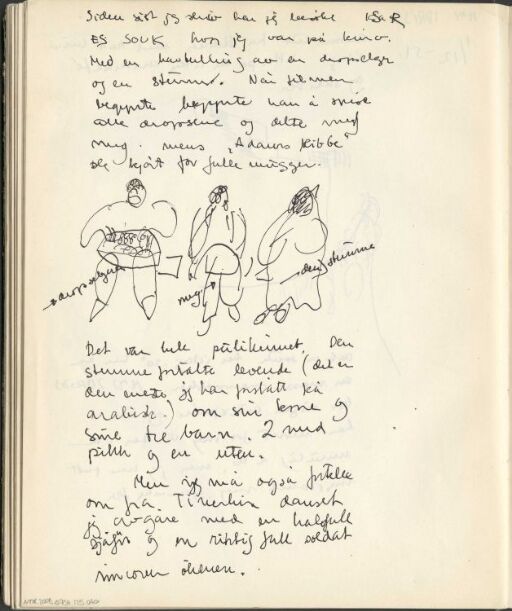 Siden sist jeg skrev har jeg besøkt KSAR
ES SOUK hvor jeg var på kino.
Med en bestilling av en dropselger
og en stumme. Når filmen
begynte begynte han å spise
alle dropsene og delte med
meg. mens "Adams Ribbe"
ble kjørt for fulle mugger.
dropselgeren
meg
den stumme
Det var helt pålitelig. Den
stumme fortalte levende (det er
den eneste jeg har forstått på
arabisk.) om sin kone og
sine tre barn. 2 med
pikk og en uten.
Men jeg må også fortelle
om fra Tinerhir danset
jeg avgårde med en halvfull
sjåfør og en riktig full soldat
innover ökenen.